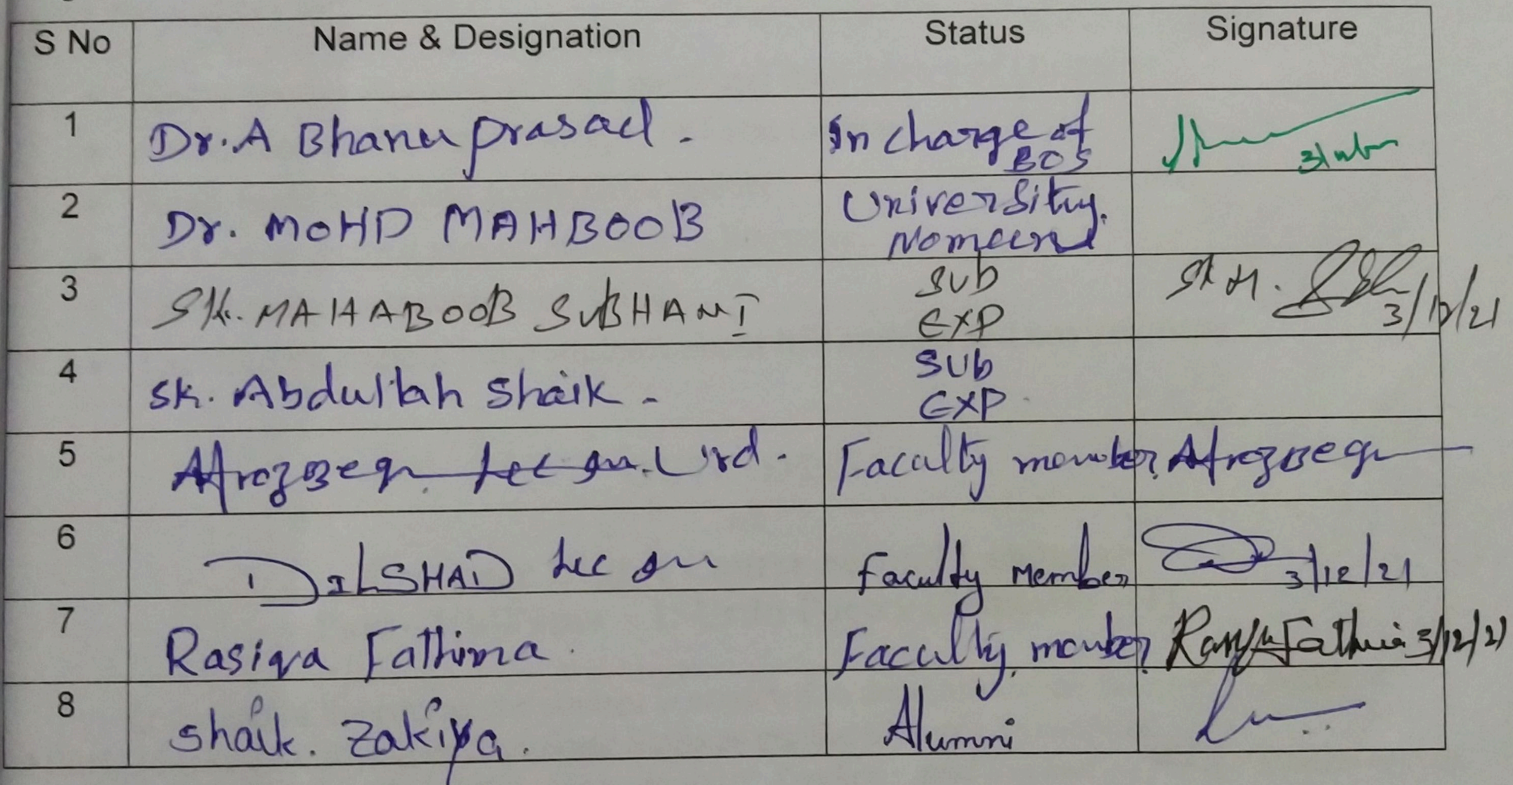 S No Name & Designation Status Signature
1 Dr. A Bhanu prasad. In charge of BOS
2 Dr. MOHD MAHBOOB University. Nomeend
3 SK. MAHABOOB SUBHANI Sub EXP SK M. 3/12/21
4 SK. Abdullah Shaik - SUb EXP
5 Afrozbeg Lec in Urd. Faculty member, Afrozbeg
6 DILSHAD Lec in Faculty Member 3/12/21
7 Rasiya Fathima Faculty, member, Fathima 3/12/21
8 Shaik. Zakiya. Alumni